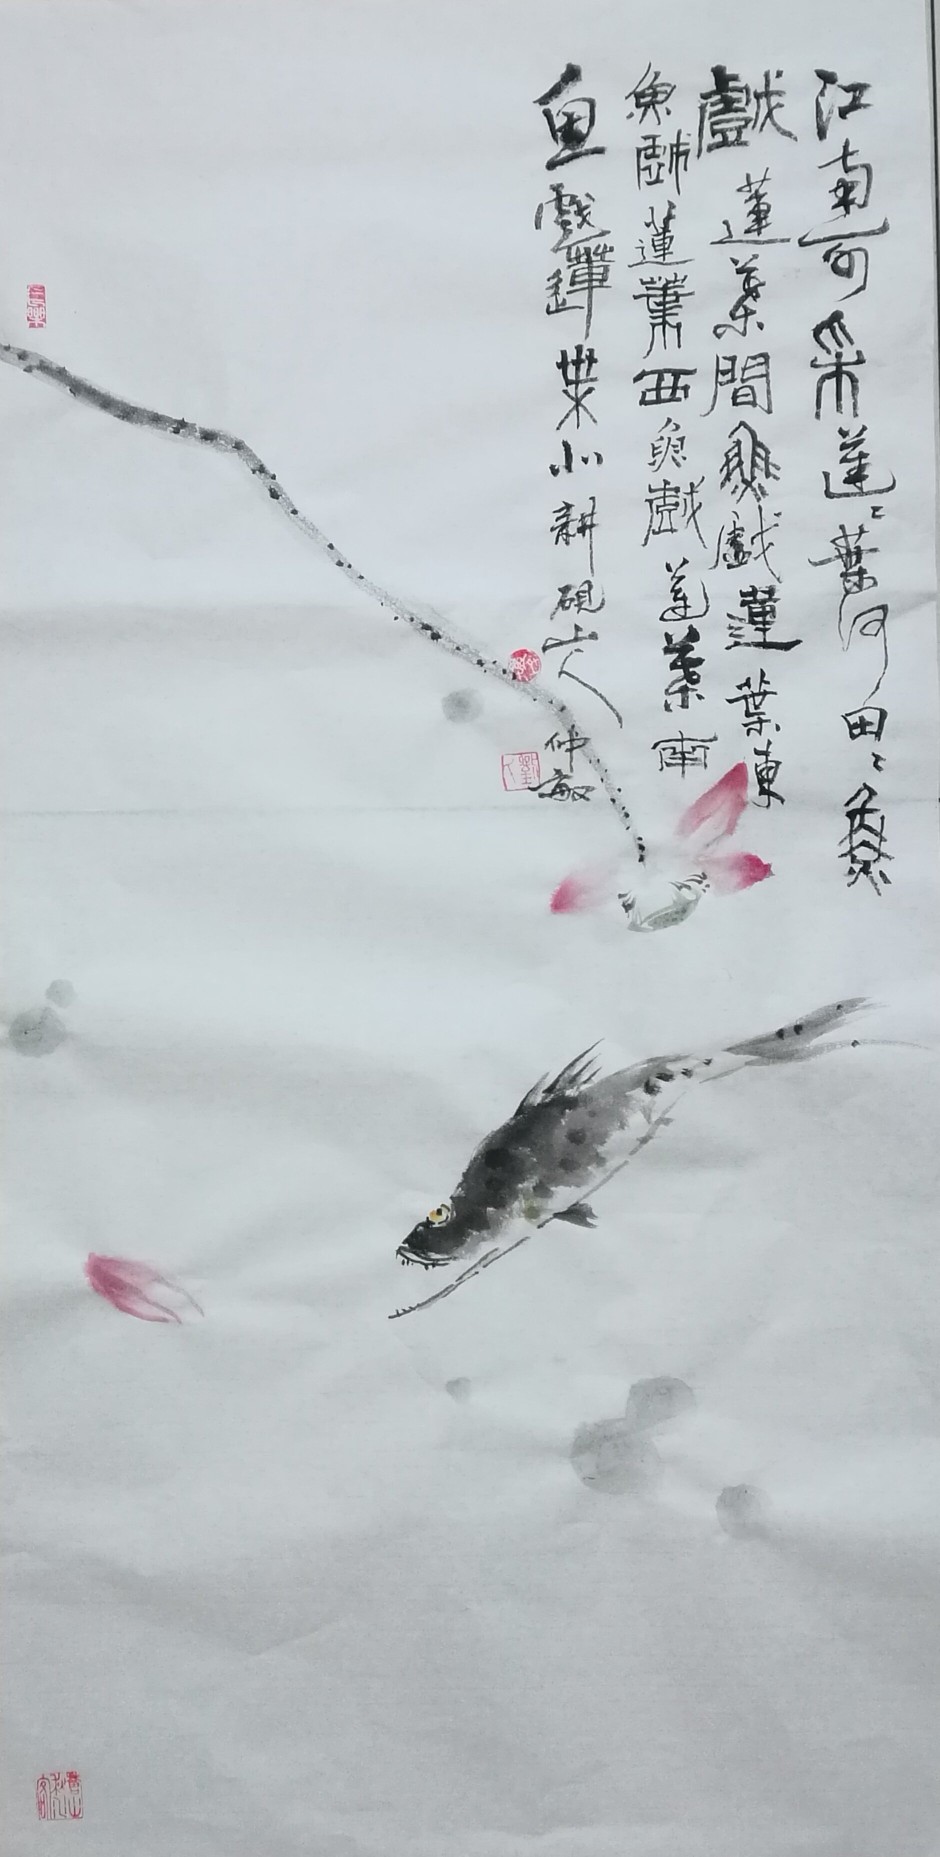 江南可采蓮〻葉何田〻魚
戲蓮葉間魚戲蓮葉東
魚戲蓮葉西魚戲蓮葉南
魚戲蓮葉北耕硯山人仲敏